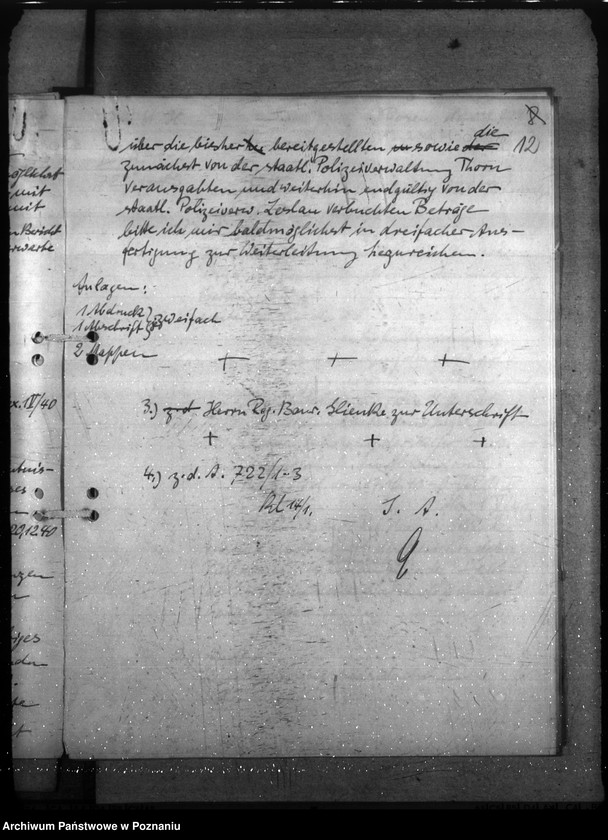 8
12
die
über die bisher bereitgestellten sowie der
zunächst von der staatl. Polizeiverwaltung Thorn
verausgabten und weiterhin endgültig von der
staatl. Polizeiverw. Leslau verbuchten Beträge
bitte ich mir baldmöglichst in dreifacher Aus-
fertigung zur Weiterleitung hergureichen.
Anlagen:
1 Abdruck
1 Abschrift } zweifach
2 Mappen
3.) z.d. Herrn Rg. Baur. Glienke zur Unterschrift
4.) z.d. A. 722/1-3
14/1.
I. A.
mit
mit
n Bericht
rwarte
IV/40
12.40
Archiwum Państwowe w Poznaniu